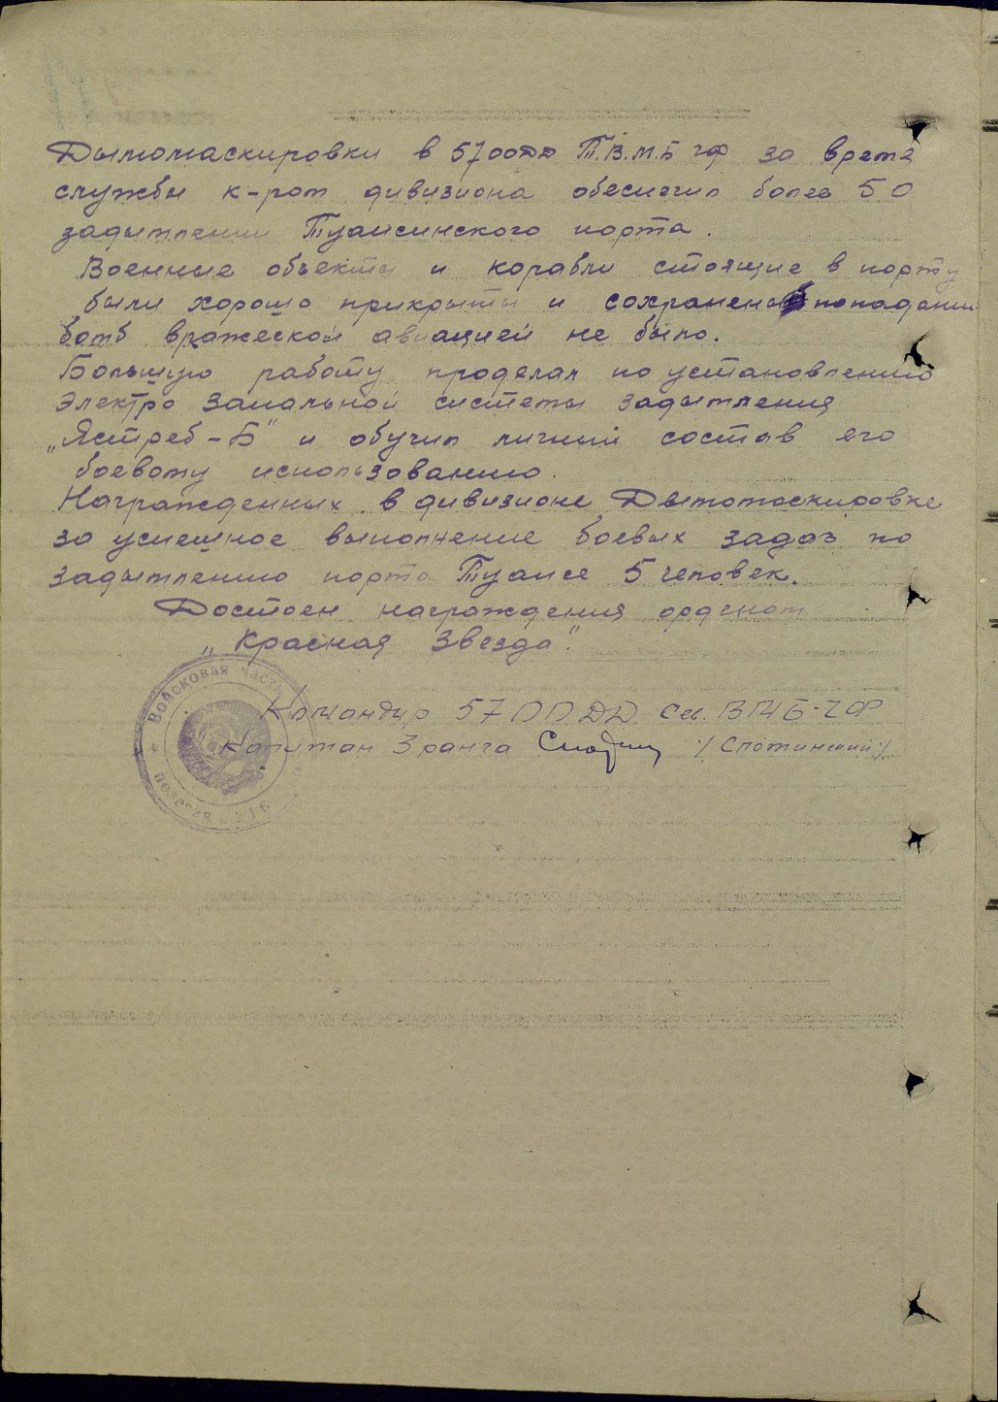 Дымомаскировки в 57ООДД Т.В.М.Б ЧФ за время
службы к-ром дивизиона обеспечил более 50
задымлений Туапсинского порта.
Военные объекты и корабли стоящие в порту
были хорошо прикрыты и сохранена попадании
бомб вражеской авиацией не было.
Большую работу проделал по установлению
Электро запальной системы задымления
„Ястреб-Б" и обучил личный состав его
боевому использованию.
Награжденных в дивизионе Дымомаскировке
за успешное выполнение боевых задач по
задымлению порта Туапсе 5 человек.
Достоен награждения орденом
„Красная Звезда".
Командир 57 ООДД ВМБ-ЧФ
Капитан 3 ранга /Слотинский/
Войсковая часть
полевая